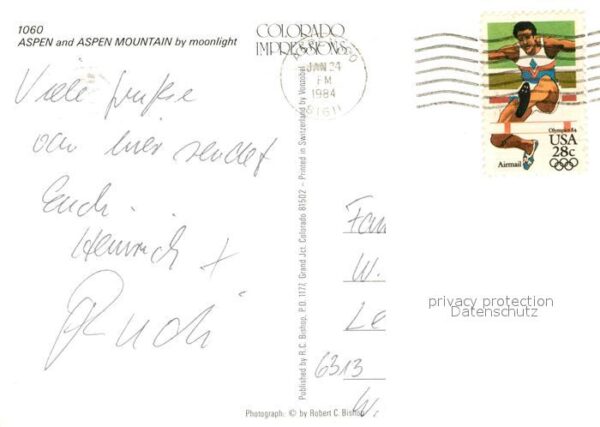 1060
ASPEN and ASPEN MOUNTAIN by moonlight
COLORADO
IMPRESSIONS
JAN 24
PM
1984
81611
Olympics 84
USA
28c
Airmail
Viele Grüße
von hier sendet
Euch
Heinrich +
Rudi
Published by R.C. Bishop, P.O. 1177, Grand Jct. Colorado 81502 - Printed in Switzerland by
Fam
W.
Le
6313
W.
privacy protection
Datenschutz
Photograph: © by Robert C. Bishop